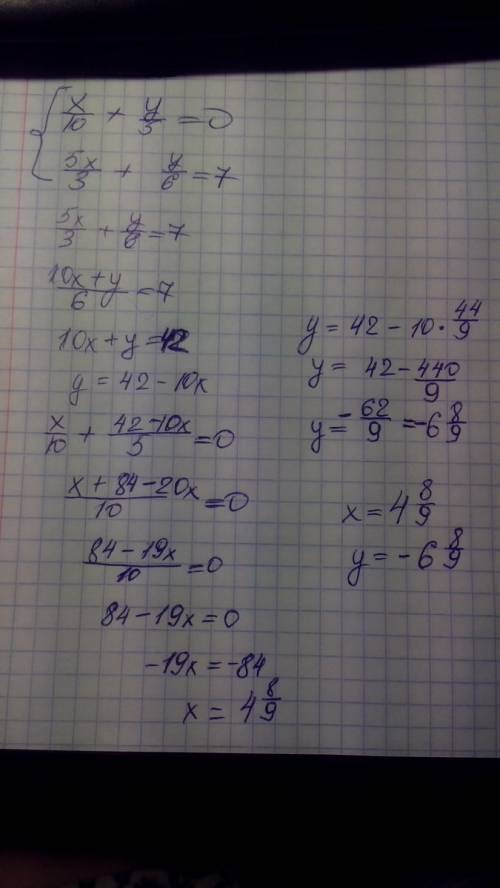 x/10 + y/5 = 0
5x/3 + y/6 = 7
5x/3 + y/6 = 7
10x+y/6 = 7
10x+y=42
y = 42 - 10x
x/10 + 42-10x/5 = 0
x + 84 - 20x/10 = 0
84 - 19x/10 = 0
84 - 19x = 0
-19x = -84
x = 4 8/9
y = 42 - 10 · 44/9
y = 42 - 440/9
y = -62/9 = -6 8/9
x = 4 8/9
y = -6 8/9